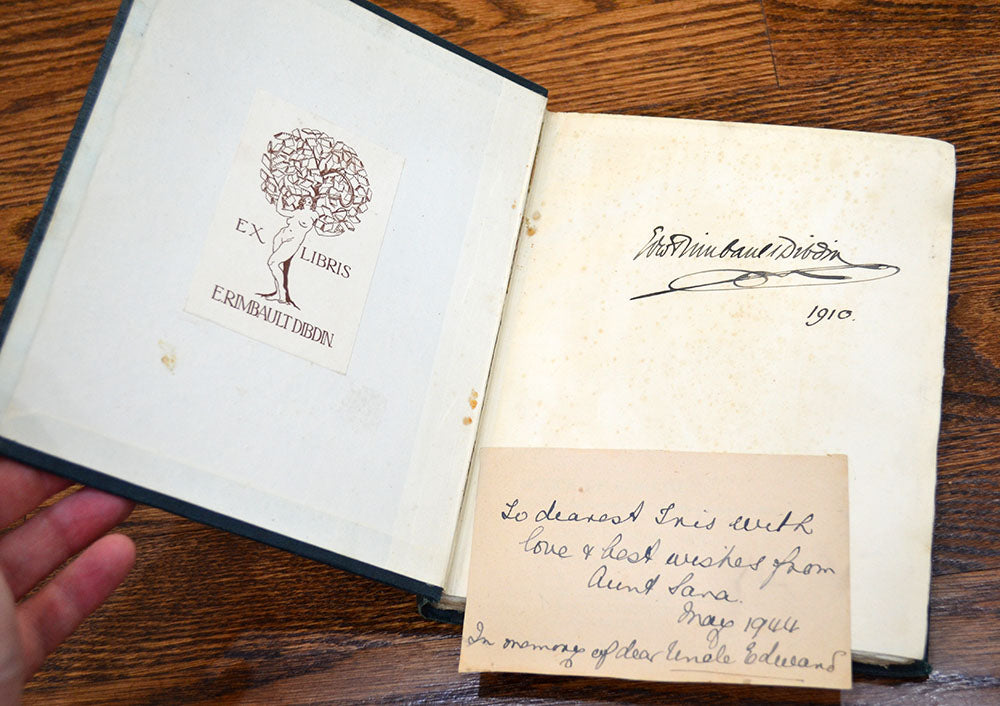 EX LIBRIS
E. RIMBAULT DIBDIN.
Edw Rimbault Dibdin
1910.
To dearest Iris with
love & best wishes from
Aunt Sara.
May 1944
In memory of dear Uncle Edward